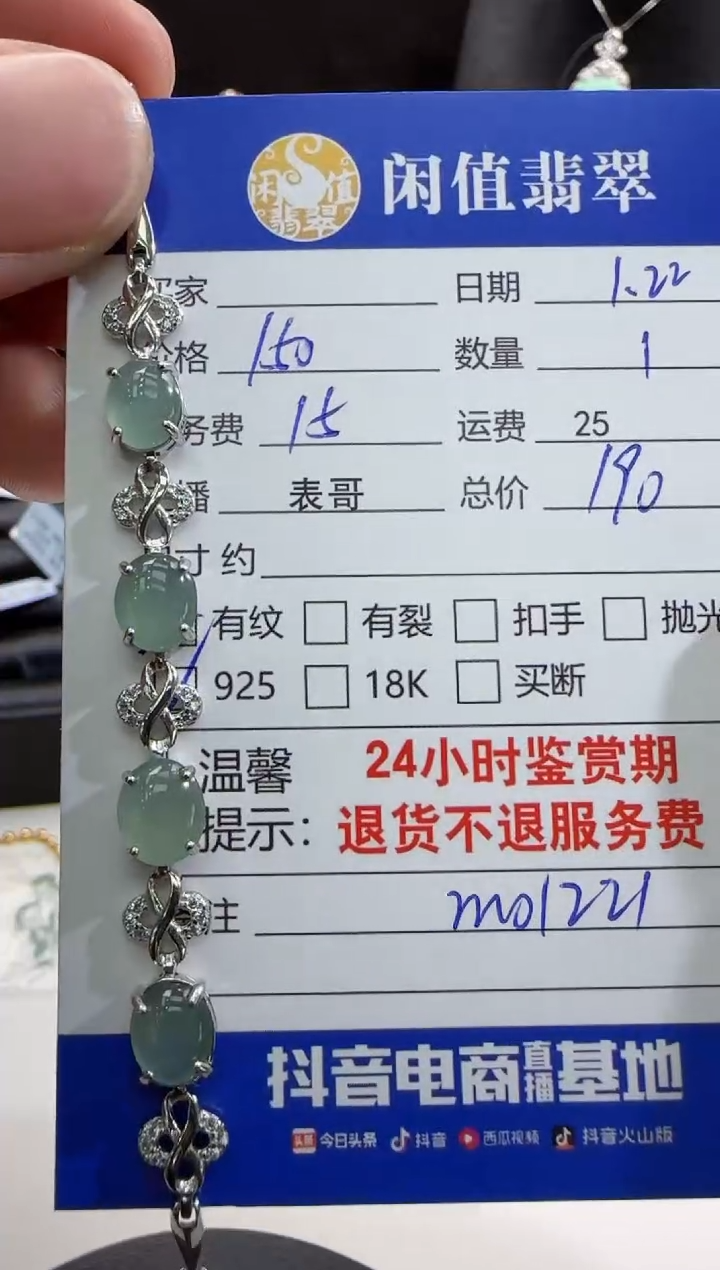 闲值翡翠
闲值翡翠
家 日期 1.22
格 150 数量 1
务费 15 运费 25
播 表哥 总价 190
寸约
有纹 有裂 扣手 抛光
925 18K 买断
温馨 24小时鉴赏期
提示： 退货不退服务费
注 m01221
抖音电商直播基地
头条 今日头条 抖音 西瓜视频 抖音火山版